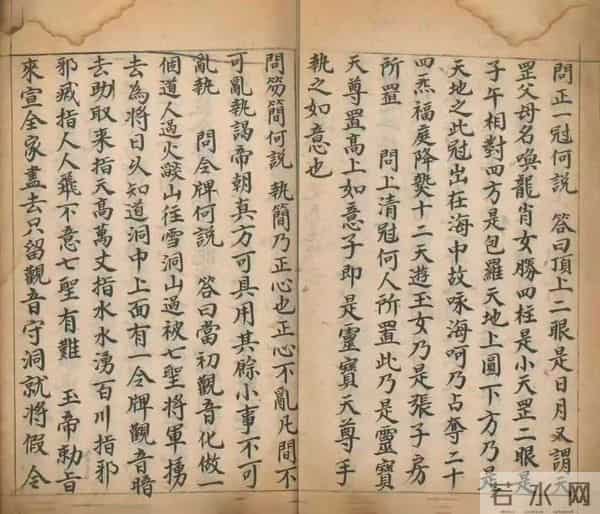 問正一冠何說 答曰頂上二眼是日月又謂天
罡父母名喚龍肖女勝四柱是小天罡二眼是
子午相對四方是包羅天地上圓下方乃是
天地之此冠出在海中故咏海呵乃占奪二十
四炁福庭降襲十二天遊玉女乃是張子房
所置 問上清冠何人所置此乃是靈寶
天尊置高上如意子即是靈寶天尊手
執之如意也
問笏簡何說 執簡乃正心也正心不亂凡間不
可亂執謁帝朝真方可具用其餘小事不可
亂執 問令牌何說 答曰當初觀音化做一
個道人過火燄山往雪洞山過被七聖將軍
去為將日久知道洞中上面有一令牌觀音暗
去取來指天高萬丈指水水湧百川指邪
邪滅指人人不意七聖有難 玉帝勅旨
來宣全家盡去只留觀音守洞就將假令
若水网